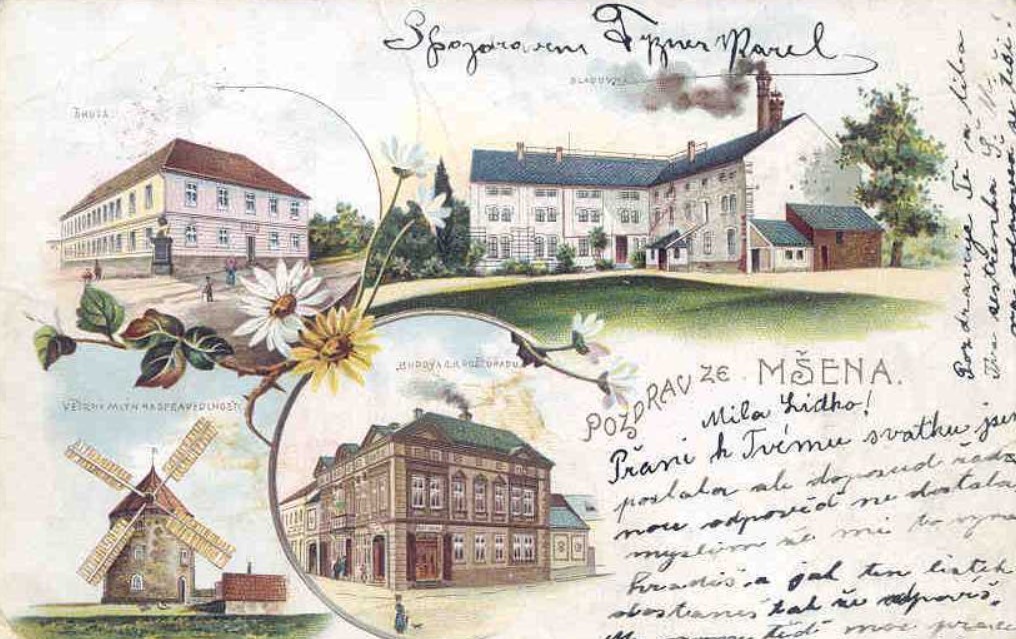 S pozdravem Tyzner Karel
SLADOVNA
ŠKOLA.
BUDOVA C.K. POŠT. ÚŘADU.
VĚTRNÝ MLÝN NA SPRAVEDLNOSTI
POZDRAV ZE MŠENA.
Milá Lidko!
Přani k Tvému svatku jsem
poslala ale doposud žádz
nou odpověd ne dostala
myslim že mi to vyna
hradiš a jak ten listek
dostaneš tak že odpoviš.
moc prace
Pozdravuje Tě a líba
Tva sestřenka